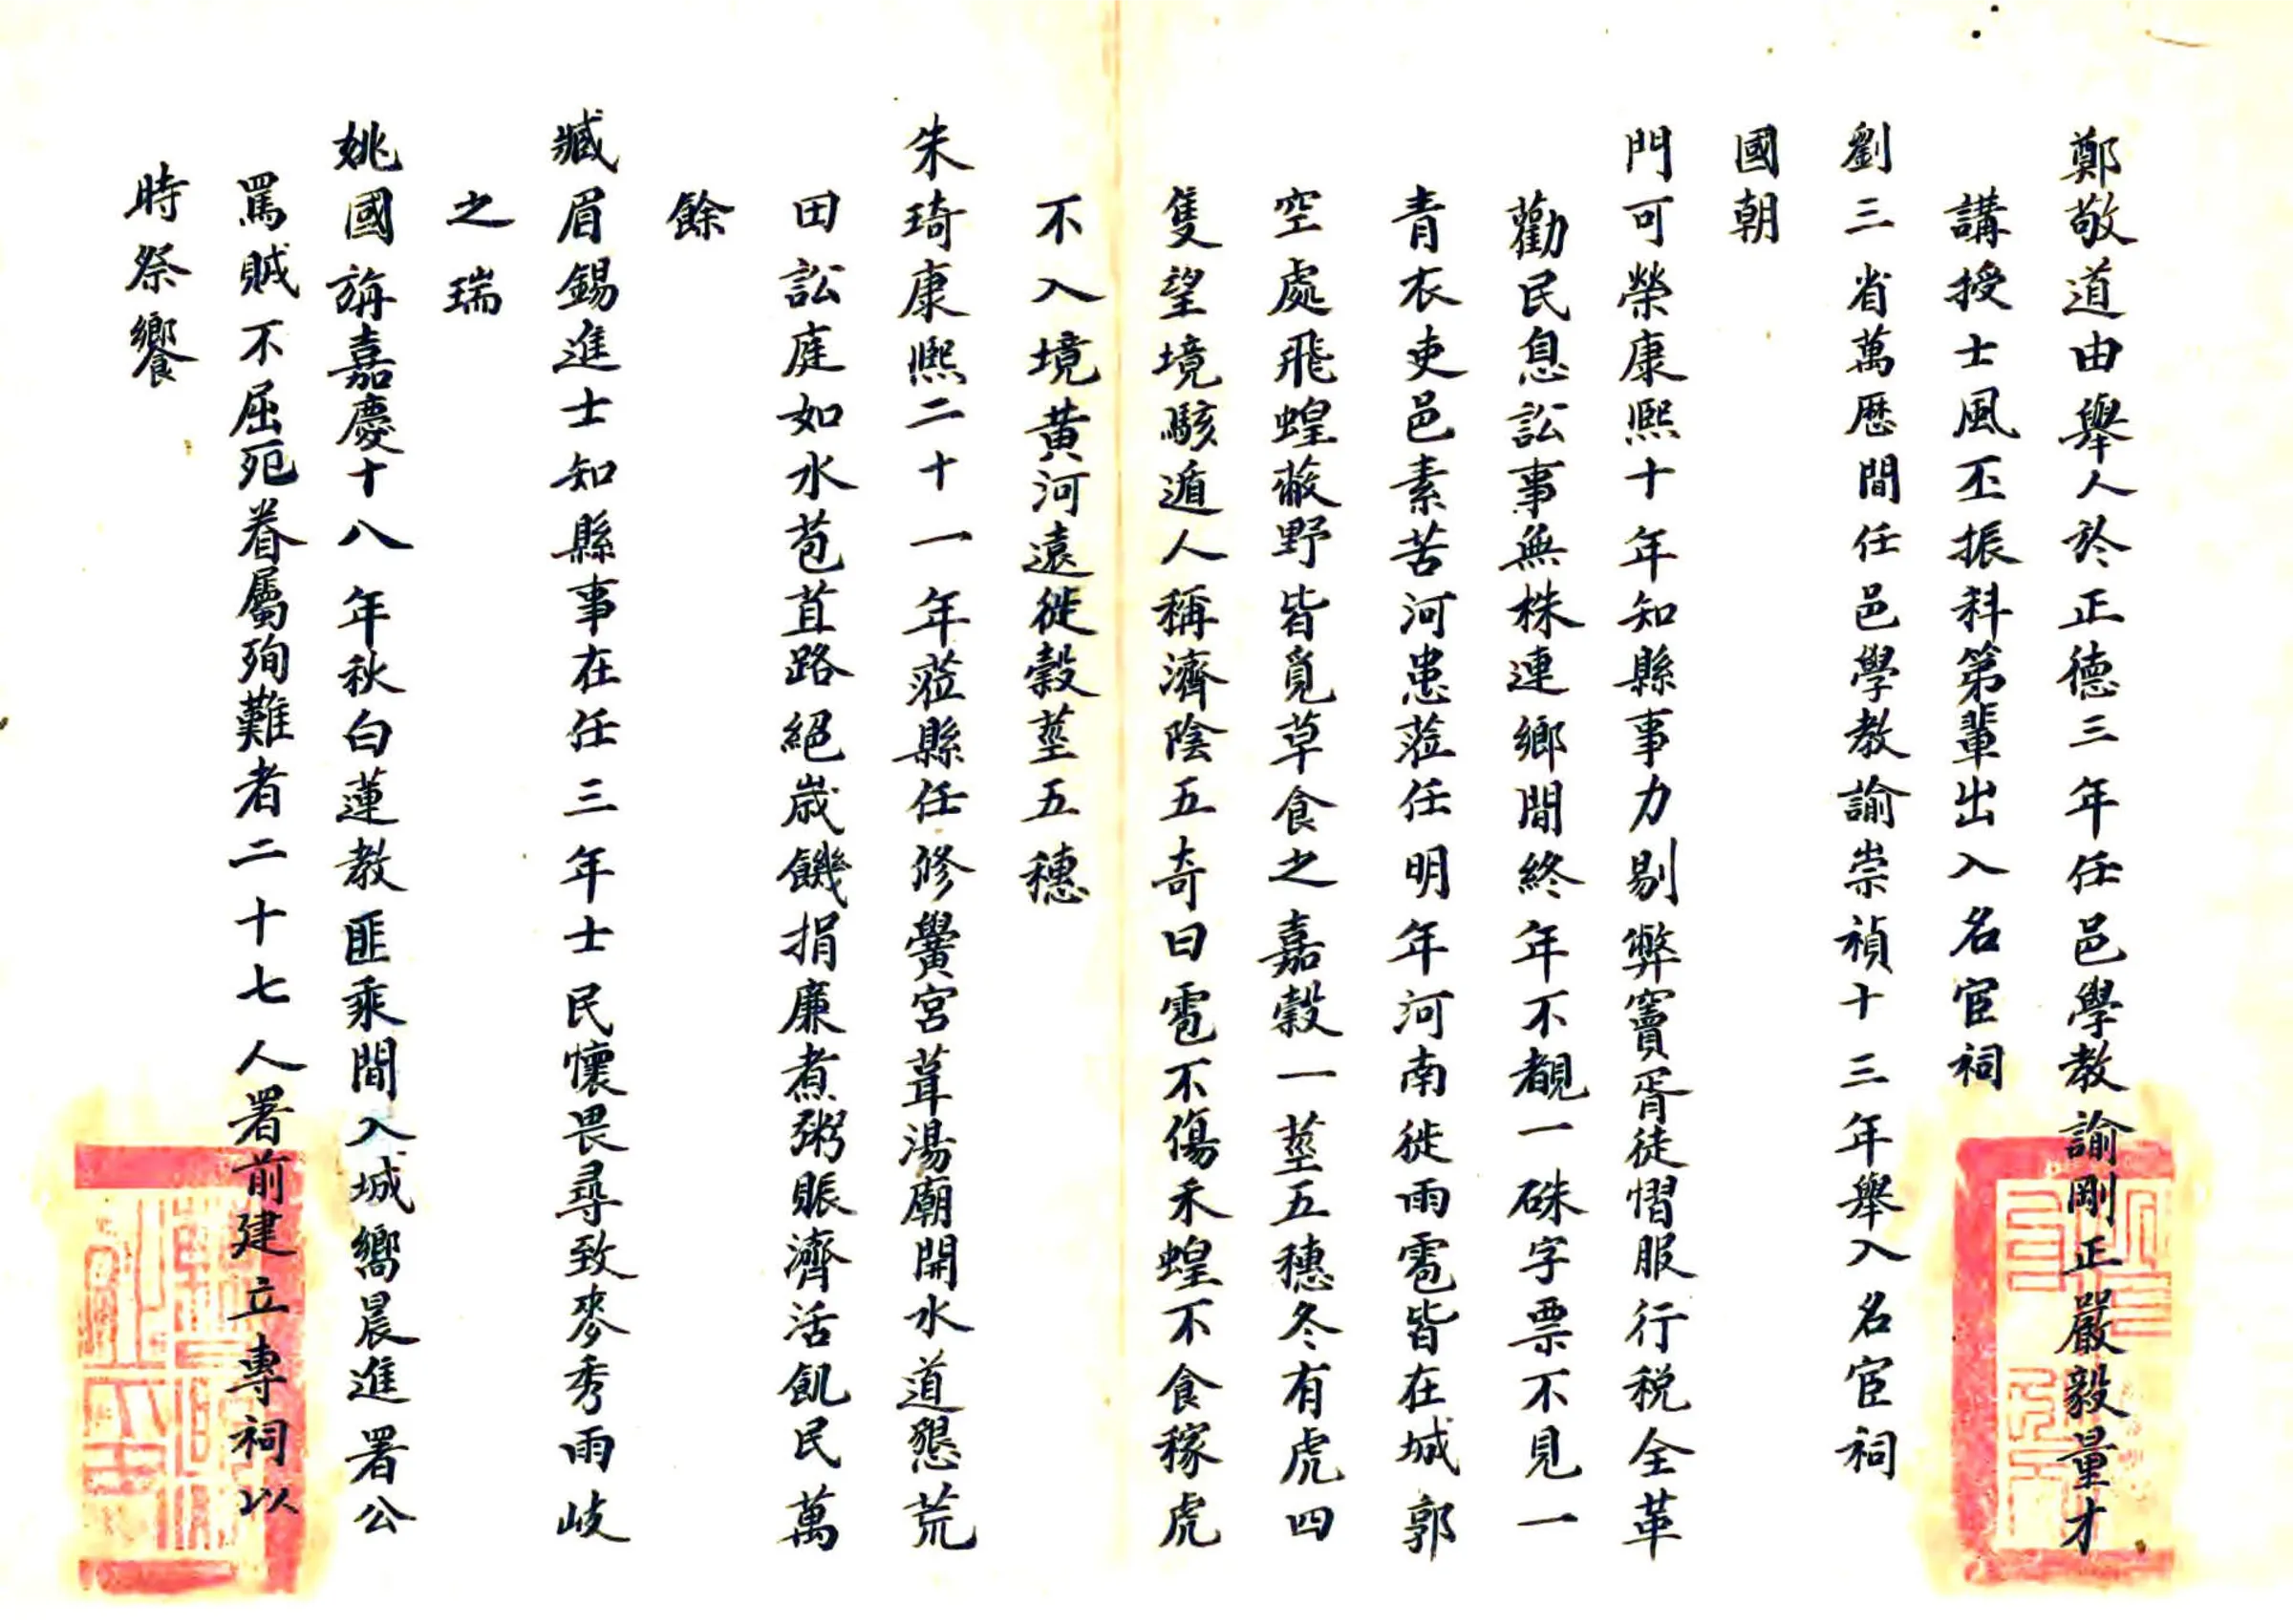 鄭敬道由舉人於正德三年任邑學教諭剛正嚴毅量才
講授士風丕振科第輩出入名宦祠
劉三省萬厯間任邑學教諭崇禎十三年舉入名宦祠
國朝
門可榮康熙十年知縣事力剔弊竇胥徒慴服行税全革
勸民息訟事無株連鄉間終年不覩一硃字票不見一
青衣吏邑素苦河患蒞任明年河南徙雨雹皆在城郭
空處飛蝗蔽野皆覓草食之嘉穀一莖五穗冬有虎四
隻望境駭遁人稱濟陰五奇曰雹不傷禾蝗不食稼虎
不入境黄河遠徙穀莖五穗
朱琦康熙二十一年蒞縣任修黌宮葺湯廟開水道懇荒
田訟庭如水苞苴路絕歲饑捐廉煮粥賬濟活飢民萬
餘
臧眉錫進士知縣事在任三年士民懷畏尋致麥秀雨岐
之瑞
姚國旃嘉慶十八年秋白蓮教匪乘間入城嚮晨進署公
罵賊不屈死眷屬殉難者二十七人署前建立專祠以
時祭饗